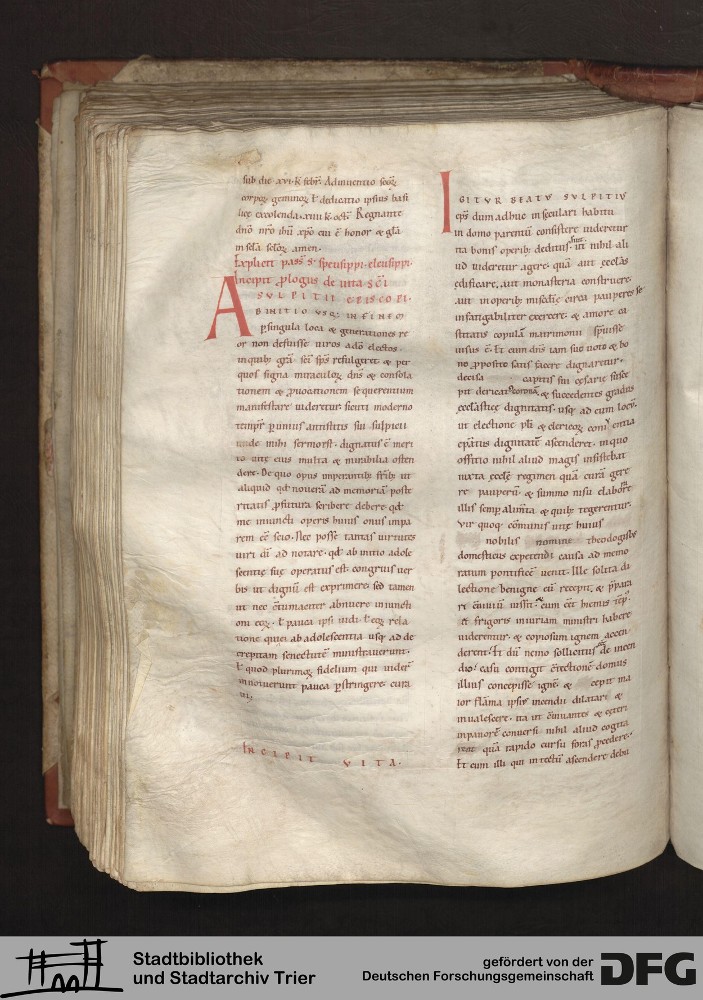 sub die xvi k̄ febr̄. Adinuentio scōꝝ
corpoꝝ geminoꝝ ł dedicatio ipsius basi
licę excolenda. xiiii k̄ octb̄. Regnante
dn̄o nr̄o ihū xp̄o cui ē honor & gła
in scła scłoꝝ amen.
Explicit pass̄ S. speusippi. eleusippi.
Incipit ꝓlogus de uita sc̄i
SULPITII EPISCOPI.
AB INITIO USQ; IN FINEM
ꝑ singula loca & generationes re
or non defuisse uiros a dō electos.
in quib; gr̄a sc̄i sp̄s refulgeret & per
quos signa miraculoꝝ dn̄s & consola
tionem & ꝓuocationem sequentium
manifestare uideretur. sicuti moderno
temporis antistitis sui sulpicii
unde mihi sermo est. dignatus ē meri
to uitę eius multa & mirabilia osten
dere. De quo opus imperantib; fr̄ib; ut
aliquid qđ nouerā ad memoriā poste
ritatis ꝓfutura scribere debere. qđ
me iniuncti operis huius onus impa
rem eē scio. Nec posse tantas uirtutes
uiri dī ad notare. qđ ab initio adole
scentię suę operatus est. congruis uer
bis ut dignū est exprimere. sed tamen
ut nec om̄imoda abnuere iniuncti
oni eoꝝ. ł pauca ipsi uidi. ł eoꝝ rela
tione qui ei ab adolescentia usq; ad de
crepitam senectutē ministrauerunt.
ł quod plurimoꝝ fidelium qui uider̄
innotuerunt pauca ꝑstringere cura
ui;
INCIPIT VITA.
IGITUR BEATUS SULPITIUS
ep̄s dum adhuc in seculari habitu
in domo parentū consistere uideretur
ita bonis operib; deditus fuit. ut nihil ali
ud uideretur agere. quā aut ęcclas
ędificare, aut monasteria construere.
aut in operib; misc̄dię circa pauperes se
infatigabiliter exercere. & amore ca
stitatis copulā matrimonii spreuisse
uisus ē. Et cum dn̄s iam suo uoto & bo
no ꝓposito satis facere dignaretur.
decisa capitis sui cęsarie susce
pit clericatꝰ coronā. & succedentes gradus
ęcclasticę dignitatis. usq; ad eum locū.
ut electione płi & clericoꝝ coniuentia
ep̄atus dignitatē ascenderet. in quo
offitio nihil aliud magis insistebat
iuxta ęcclę regimen quā curā gere
re pauperū. & summo nisu elaborare
illis semp alimta & quib; tegerentur.
Vir quoq; cōmunis uitę huius
nobilis nomine theodogisilus
domesticus expetendi causa ad memo
ratum pontificē uenit. Ille solita di
lectione benigne eū recepit. & p̄para
ri cōuiuiū iussit. & cum eēt hiemis tēp̄.
& frigoris iniuriam ministri habere
uiderentur. & copiosum ignem accen
derent. Et dū nemo sollicitus de incen
dio. casu contigit erectione domus
illius concepisse ignē. & cepit ma
ior flāma ipsius incendii dilatari &
inualescere. ita ut cōuiuantes & exteri
in pauorē conuersi nihil aliud cogita
rent quā rapido cursu foras ꝓcedere.
Et cum illi qui in tectū ascendere debu
Stadtbibliothek
und Stadtarchiv Trier
gefördert von der
Deutschen Forschungsgemeinschaft
DFG